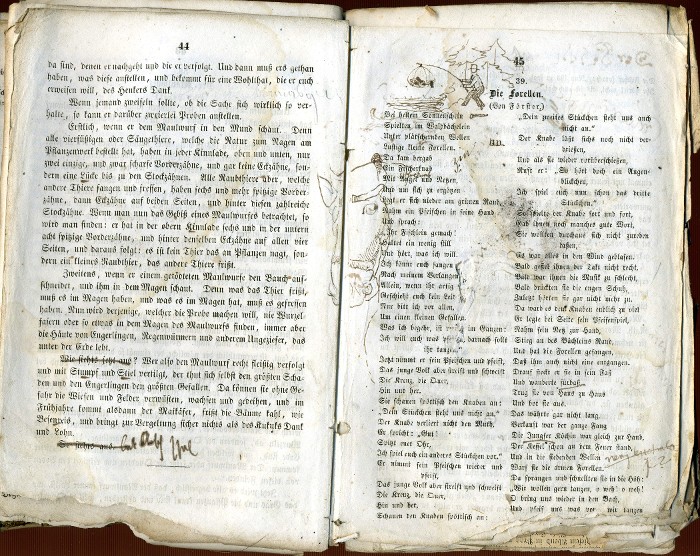 44
da sind, denen er nachgeht und die er verfolgt. Und dann muß ers gethan
haben, was diese anstellen, und bekommt für eine Wohlthat, die er euch
erweisen will, des Henkers Dank.
Wenn jemand zweifeln sollte, ob die Sache sich wirklich so ver-
halte, so kann er darüber zweierlei Proben anstellen.
Erstlich, wenn er dem Maulwurf in den Mund schaut. Denn
alle vierfüßigen oder Säugethiere, welche die Natur zum Nagen am
Pflanzenwerk bestellt hat, haben in jeder Kinnlade, oben und unten, nur
zwei einzige, und zwar scharfe Vorderzähne, und gar keine Eckzähne, son-
dern eine Lücke bis zu den Stockzähnen. Alle Raubthiere aber, welche
andere Thiere fangen und fressen, haben sechs und mehr spitzige Vorder-
zähne, dann Eckzähne auf beiden Seiten, und hinter diesen zahlreiche
Stockzähne. Wenn man nun das Gebiß eines Maulwurfes betrachtet, so
wird man finden: er hat in der obern Kinnlade sechs und in der untern
acht spitzige Vorderzähne, und hinter denselben Eckzähne auf allen vier
Seiten, und daraus folgt: es ist kein Thier das an Pflanzen nagt, son-
dern ein kleines Raubthier, das andere Thiere frißt.
Zweitens, wenn er einem getödteten Maulwurfe den Bauch auf-
schneidet, und ihm in den Magen schaut. Denn was das Thier frißt,
muß es im Magen haben, und was es im Magen hat, muß es gefressen
haben. Nun wird derjenige, welcher die Probe machen will, nie Wurzel-
fasern oder so etwas in dem Magen des Maulwurfs finden, immer aber
die Häute von Engerlingen, Regenwürmern und anderem Ungeziefer, das
unter der Erde lebt.
Wie siehts jetzt aus? Wer also den Maulwurf recht fleißig verfolgt
und mit Stumpf und Stiel vertilgt, der thut sich selbst den größten Scha-
den und den Engerlingen den größten Gefallen. Da können sie ohne Ge-
fahr die Wiesen und Felder verwüsten, wachsen und gedeihen, und im
Frühjahre kommt alsdann der Maikäfer, frißt die Bäume kahl, wie
Besenreis, und bringt zur Vergeltung sicher nichts als des Kukuks Dank
und Lohn.
So siehts aus.
45
39.
Die Forellen.
(Von Förster.)
Bei hellem Sonnenschein
Spielten im Waldbächlein
Unter plätschernden Wellen
Lustige kleine Forellen.
Da kam herab
Ein Fischerknab
Mit Angel und Netzen,
Und um sich zu ergötzen
Legt er sich nieder am grünen Rand,
Nahm ein Pfeifchen in seine Hand
Und sprach:
„Ihr Fischlein gemach!
Wartet ein wenig still
Und hört, was ich will.
Ich könnt euch fangen
Nach meinem Verlangen,
Allein, wenn ihr artig
Geschieht euch kein Leid
Nur bitt ich vor allen
Um einen kleinen Gefallen.
Was ich begehr, ist wenig im Ganzen:
Ich will euch was pfeifen, darnach sollt
ihr tanzen.“
Jetzt nimmt er sein Pfeifchen und pfeift,
Das junge Volk aber streift und schweift
Die Kreuz, die Quer,
Hin und her.
Sie schauen spöttisch den Knaben an:
„Dein Stückchen steht uns nicht an.“
Der Knabe verliert nicht den Muth,
Er spricht: „Gut!
Spitzt mir Ohr,
Ich spiel euch ein anderes Stückchen vor.“
Er nimmt sein Pfeifchen wieder und
pfeift,
Das junge Volk aber streift und schweift
Die Kreuz, die Quer,
Hin und her,
Schauen den Knaben spöttisch an:
„Dein zweites Stückchen steht uns auch
nicht an.“
Der Knabe läßt sichs noch nicht ver-
drießen,
Und als sie wieder vorüberschießen,
Ruft er: „So hört doch ein Augen-
blickchen,
Ich spiel euch nun schon das dritte
Stückchen.“
So spielte der Knabe fort und fort,
Gab ihnen noch manches gute Wort,
Sie wollten durchaus sich nicht zureden
lassen,
Es war alles in den Wind geblasen.
Bald gefiel ihnen der Takt nicht recht,
Bald war ihnen die Musik zu schlecht,
Bald drückten sie die engen Schuh,
Zuletzt hörten sie gar nicht mehr zu.
Da ward es dem Knaben endlich zu viel
Er legte bei Seite sein Pfeifenspiel,
Nahm sein Netz zur Hand,
Stieg an des Bächleins Rand,
Und hat die Forellen gefangen,
Daß ihm auch nicht eine entgangen.
Drauf steckt er sie in sein Faß
Und wanderte fürbaß.
Trug sie von Haus zu Haus
Und bot sie aus.
Das währte gar nicht lang
Verkauft war der ganze Fang
Die Junafer Köchin war gleich zur Hand,
Der Kessel schon an dem Feuer stand,
Und in die siedenden Wellen
Warf sie die armen Forellen.
Da sprangen und schnellten sie in die Höh:
„Wir wollen gern tanzen, o weh! o weh!
O bring uns wieder in den Bach,
Und pfeif uns was vor wir tanzen